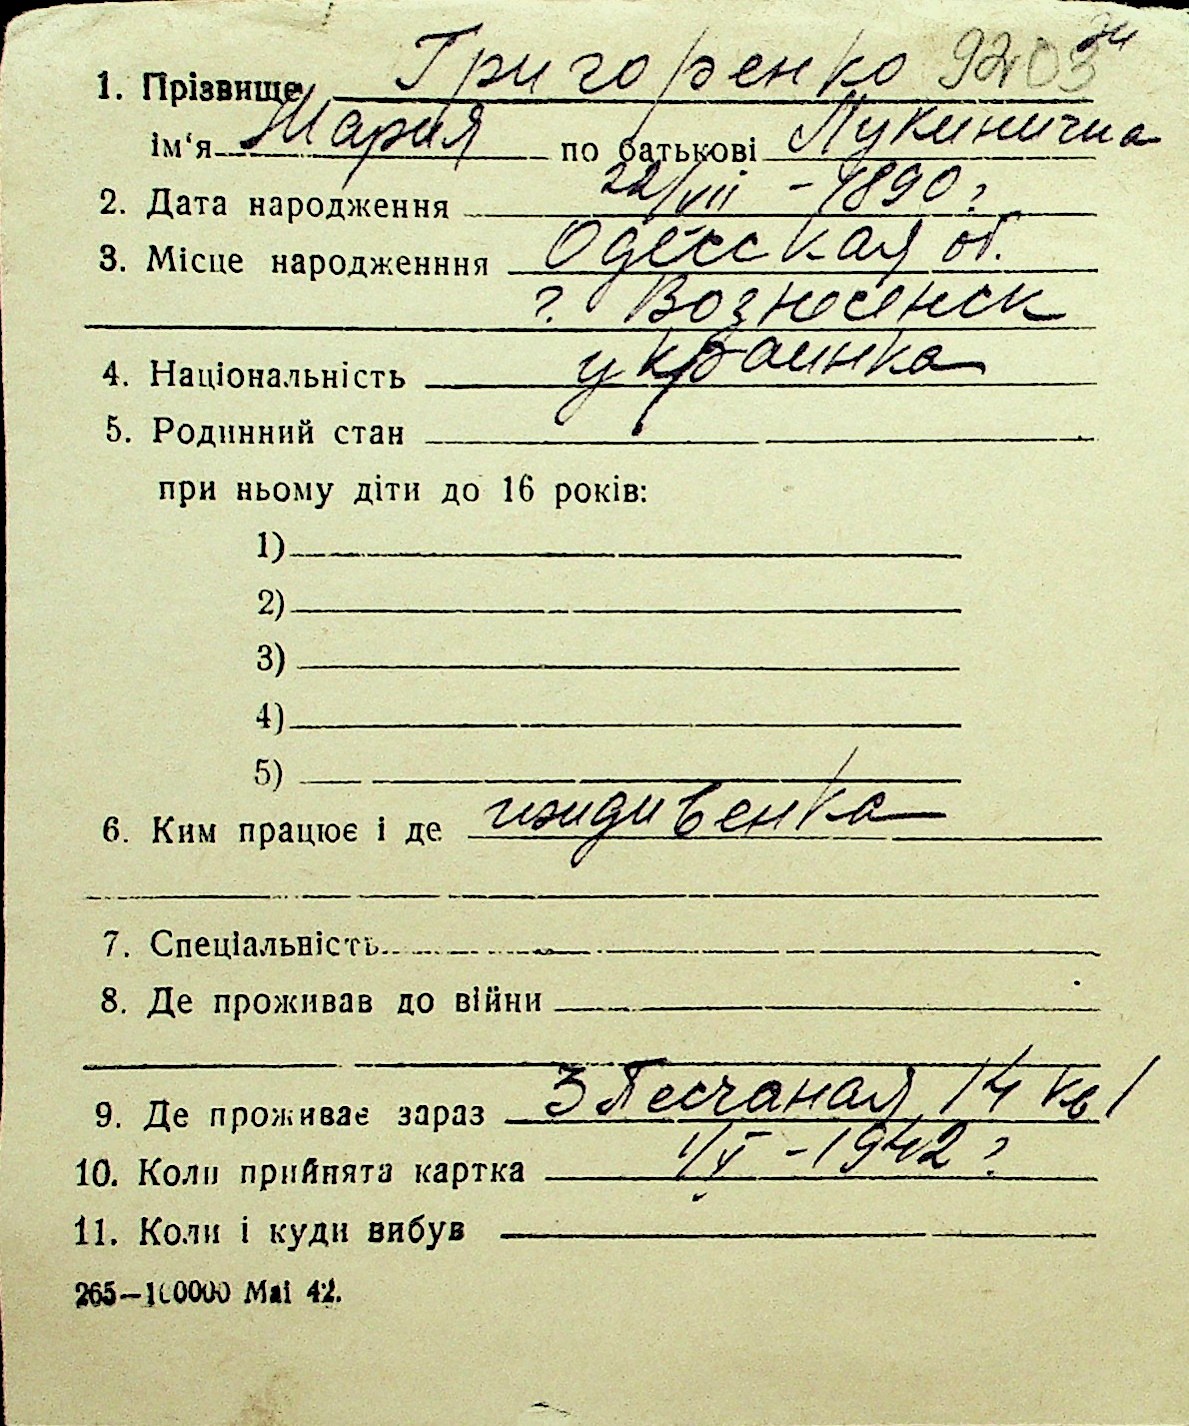 1. Прізвище Григоренко 9203
ім‘я Мария по батькові Лукинична
2. Дата народження 22/VII - 1890 г
3. Місце народженння Одесская об.
г. Вознесенск
4. Національність украинка
5. Родинний стан
при ньому діти до 16 років:
1)
2)
3)
4)
5)
6. Ким працює і де иждивенка
7. Спеціальність
8. Де проживав до війни
9. Де проживає зараз 3 Песчаная 14 кв 1
10. Коли прийнята картка 1/V - 1942 г
11. Коли і куди вибув
265—100000 Маі 42.